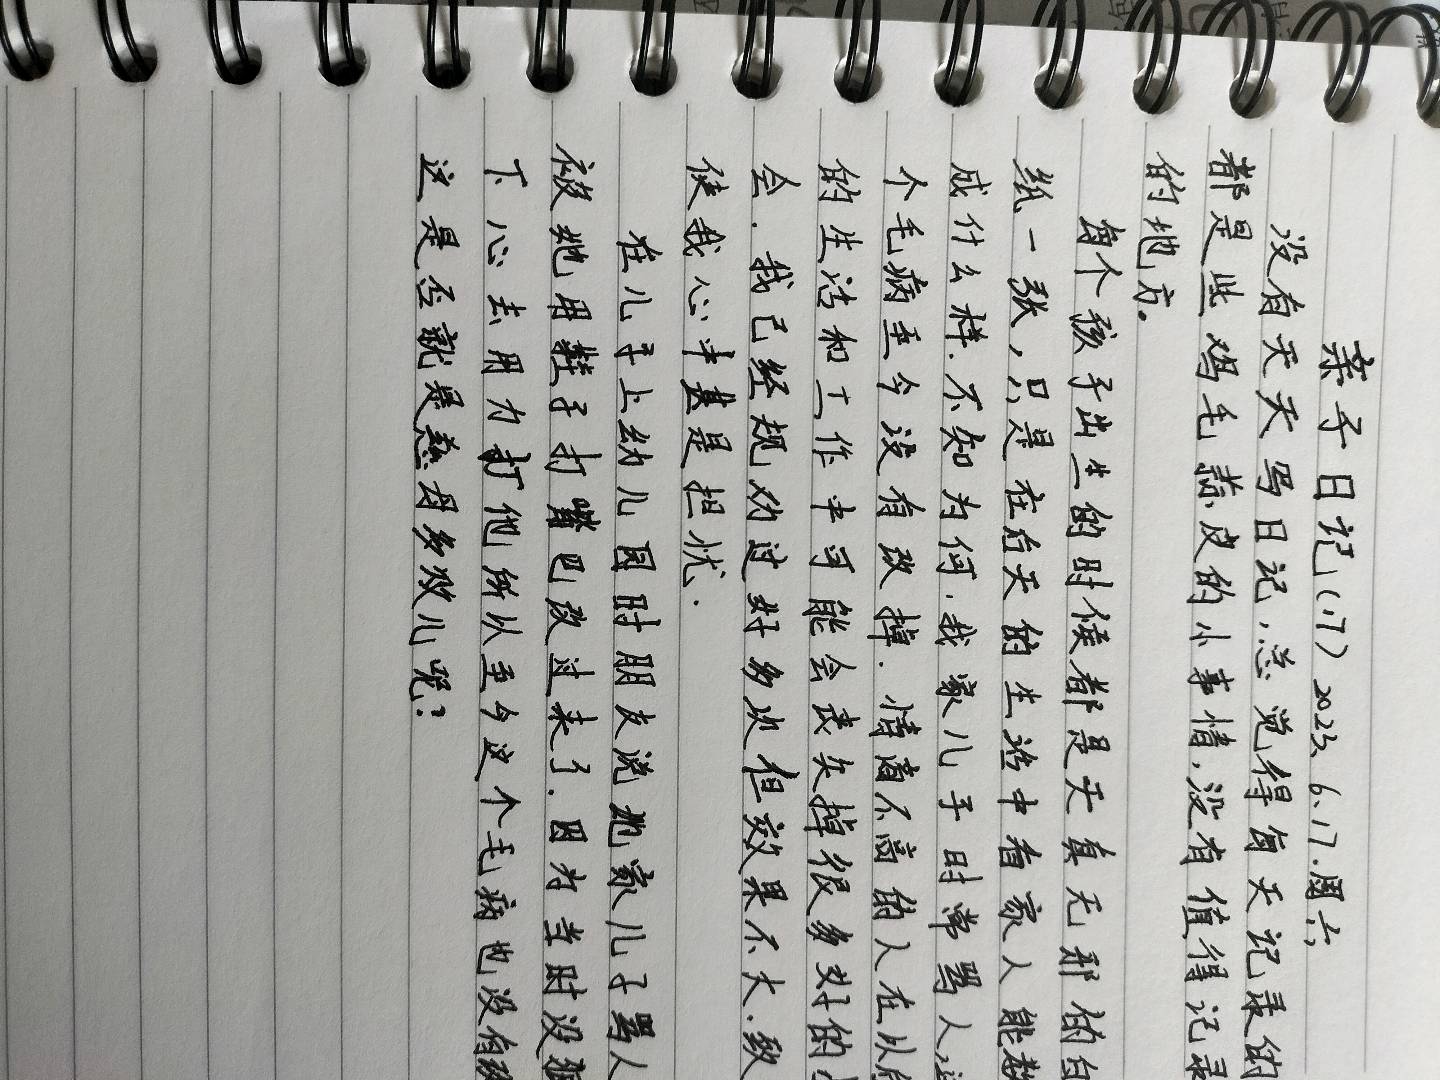 亲子日记(17) 2023.6.17.周六
没有天天写日记，总觉得每天记录的
都是些鸡毛蒜皮的小事情，没有值得记录
的地方。
每个孩子出生的时候都是天真无邪的白
纸一张，只是在后天的生活中看家人能教
成什么样.不知为何，我家儿子时常骂人，这
个毛病至今没有改掉.情商不高的人在以后
的生活和工作中可能会丧失掉很多好的
会.我已经规劝过好多次但效果不大.致
使我心中甚是担忧.
在儿子上幼儿园时朋友说她家儿子骂人
被她用鞋子打嘴巴改过来了.因为当时没狠
下心去用力打他所以至今这个毛病也没有改
这是否就是慈母多败儿呢?